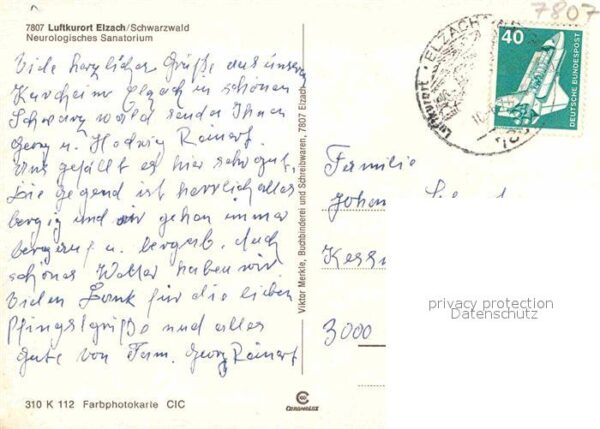 7807 Luftkurort Elzach/Schwarzwald
Neurologisches Sanatorium
Viele herzlicher Grüße aus unserm
Kurheim Elzach im schönen
Schwarzwald sendet Ihnen
Georg u. Hedwig Reinert.
Uns gefällt es hier sehr gut.
Die Gegend ist herrlich alles
bergig und wir gehen immer
bergauf u. bergab. Auch
schönes Wetter haben wir
Vielen Dank für die lieben
Pfingstgrüße und alles
Gute von Fam. Georg Reinert
310 K 112 Farbphotokarte CIC
Viktor Merkle, Buchbinderei und Schreibwaren, 7807 Elzach
CEKUMDLUX
7807
ELZACH
Luftkurort
40
DEUTSCHE BUNDESPOST
Familie
Joha
Kess
3000
privacy protection
Datenschutz